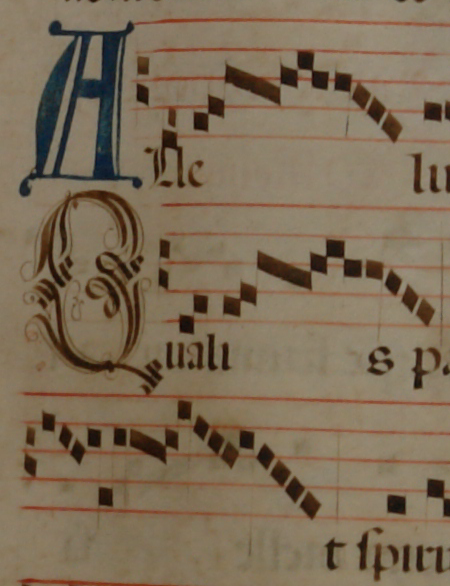 Alle lu
Quali s pa
t spiri